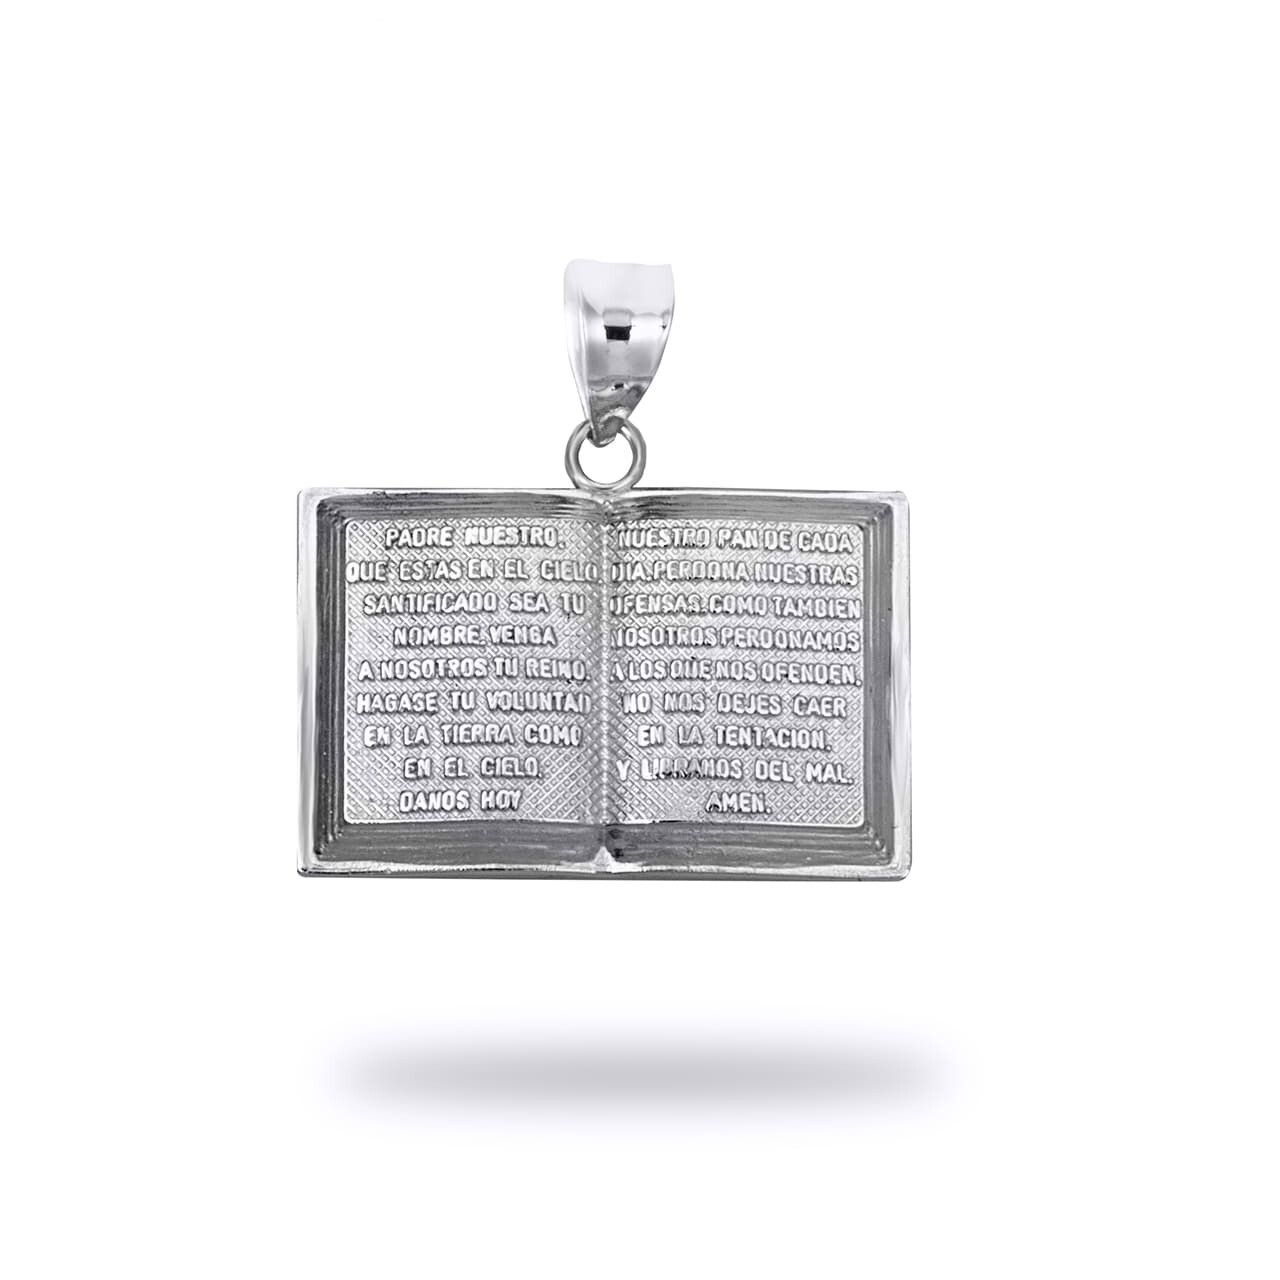 PADRE NUESTRO.
QUE ESTAS EN EL CIELO
SANTIFICADO SEA TU
NOMBRE. VENGA
A NOSOTROS TU REINO.
HAGASE TU VOLUNTAD
EN LA TIERRA COMO
EN EL CIELO.
DANOS HOY
NUESTRO PAN DE CADA
DIA. PERDONA NUESTRAS
OFENSAS. COMO TAMBIEN
NOSOTROS PERDONAMOS
A LOS QUE NOS OFENDEN.
NO NOS DEJES CAER
EN LA TENTACION.
Y LIBRANOS DEL MAL.
AMEN.